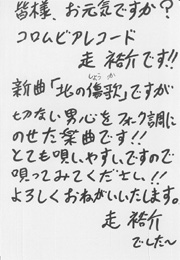 皆様、お元気ですか?
コロムビアレコード
走 裕介です!!
新曲「北の傷歌」ですが
しょう か
切ない男心をフォーク調に
のせた楽曲です!!
とても唄いやすいですので
唄ってみてください!!
よろしくおねがいいたします。
走 裕介
でした〜